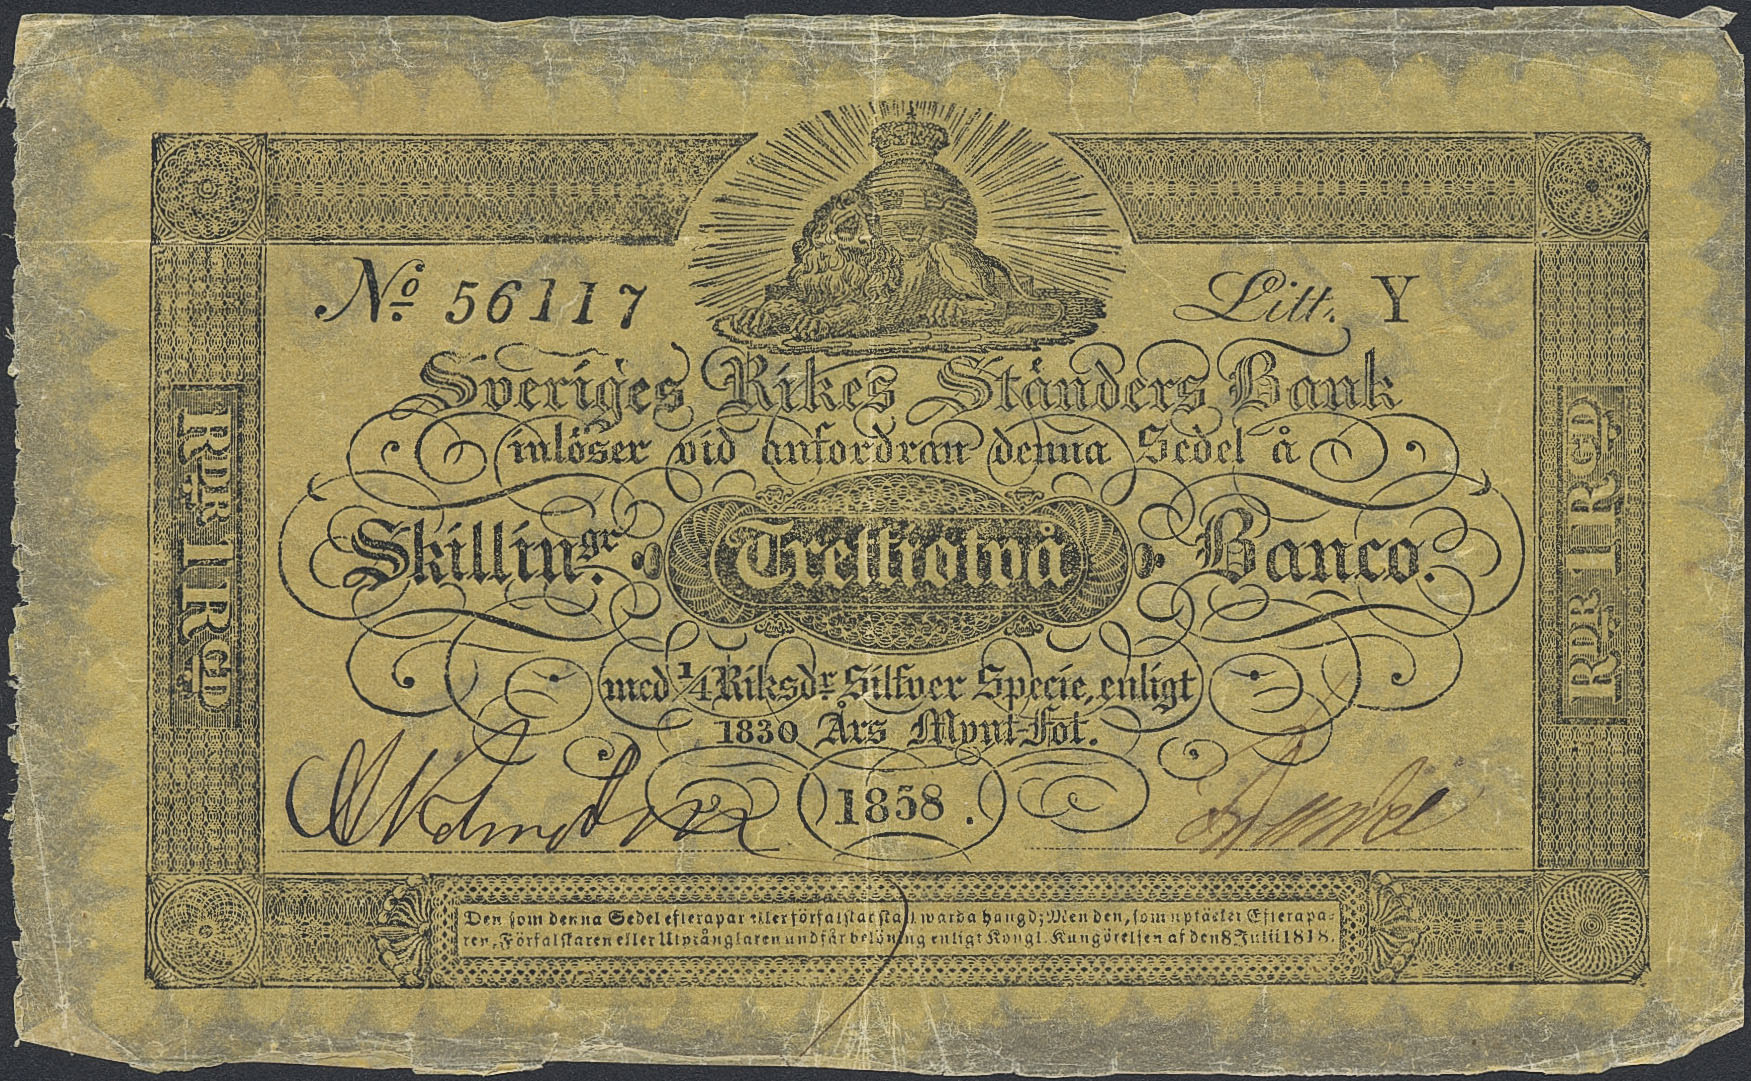 No 56117 Litt. Y
Sveriges Rikes Ständers Bank
inlöser vid anfordran denna Sedel å
Skillingr. Trettiotvå Banco.
med 1/4 Riksdr Silfver Specie, enligt
1830 Års Mynt-Fot.
1858.
Den som denna Sedel efterapar eller förfalskar skall warda hängd; Men den, som uptäcker Efterapa-
ren, Förfalskaren eller Utprånglaren undfår belöning enligt Kongl. Kungörelsen af den 8 Julii 1818.
RDR 1 RGD
RDR 1 RGD